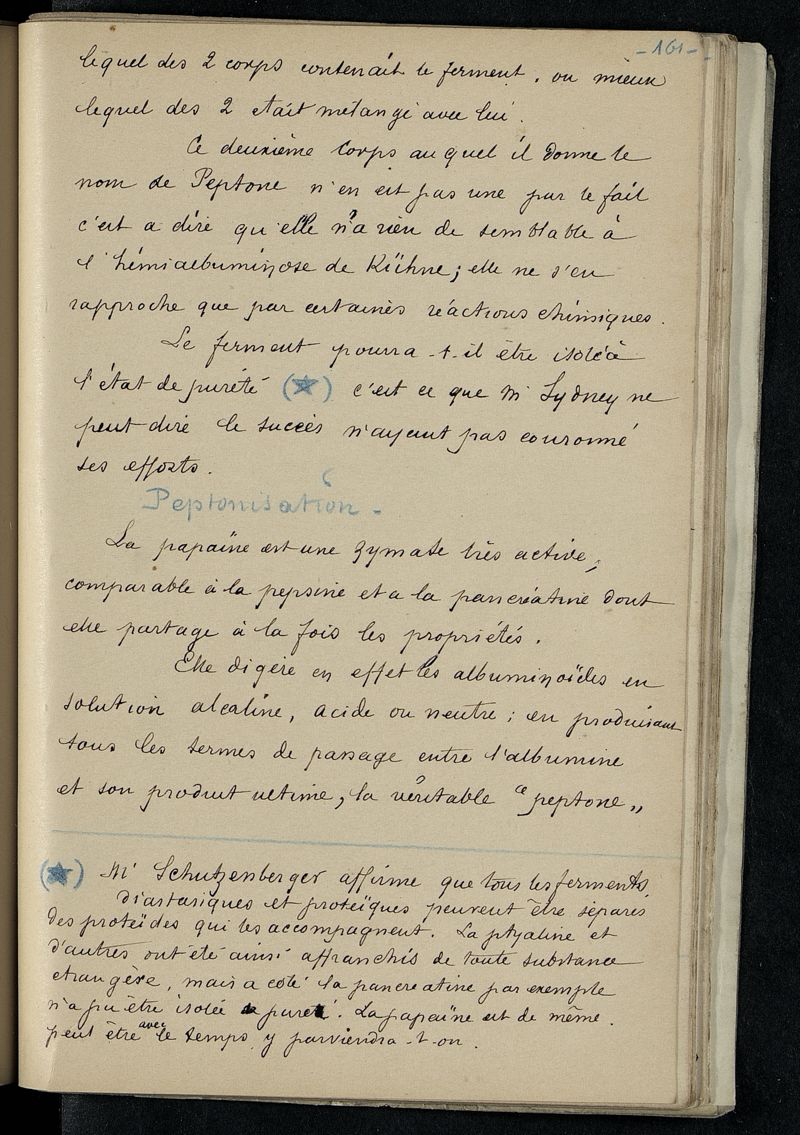 - 161 -
lequel des 2 corps contenait le ferment, ou mieux
lequel des 2 était mélangé avec lui.
Ce deuxième corps auquel il donne le
nom de Peptone n'en est pas une par le fait
c'est a dire qu'elle n'a rien de semblable à
l'hémialbuminose de Kühne; elle ne s'en
rapproche que par certaines réactions chimiques.
Le ferment pourra-t-il être isolé à
l'état de pureté (☆) c'est ce que Mr Sydney ne
peut dire le succès n'ayant pas couronné
ses efforts.
Peptonisation -
La papaïne est une zymase très active,
comparable à la pepsine et a la pancréatine dont
elle partage à la fois les propriétés.
Elle digère en effet les albuminoïdes en
solution alcaline, acide ou neutre; en produisant
tous les termes de passage entre l'albumine
et son produit ultime, la véritable "peptone"
(☆) Mr Schutzenberger affirme que tous les ferments
diastasiques et protéïques peuvent être séparés
des protéïdes qui les accompagnent. La ptyaline et
d'autres ont été ainsi affranchis de toute substance
etrangère, mais a coté la pancreatine par exemple
n'a pu être isolée pure. La papaïne est de même.
peut être avec le temps y parviendra-t-on.